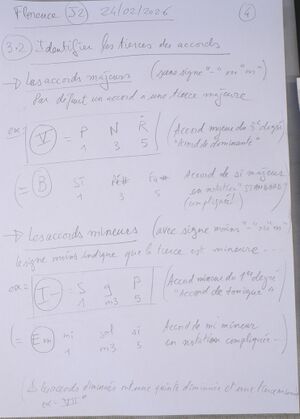 Florence (J2) 24/02/2026 (4)
3.2 Identifier les tierces des accords
→ Les accords majeurs (sans signe "-" "m")
Par défaut un accord a une tierce majeure
ex: V = P N Ṙ
1 3 5
(Accord majeur du 5e degré
"Accord de dominante"
(= B Si Ré# Fa#
1 3 5
Accord de si majeur
en notation "STANDARD"
(compliquée)
→ Les accords mineurs (avec signe moins "-" "m")
Le signe moins indique que la tierce est mineure...
ex: I- = S g P
1 m3 5
(Accord mineur du 1er degré
"Accord de tonique"
(= Em mi sol si
1 m3 5
Accord de mi mineur
en notation compliquée...)
(⚠ Les accords diminués ont une quinte diminuée et une tierce mineure
ex- VII°